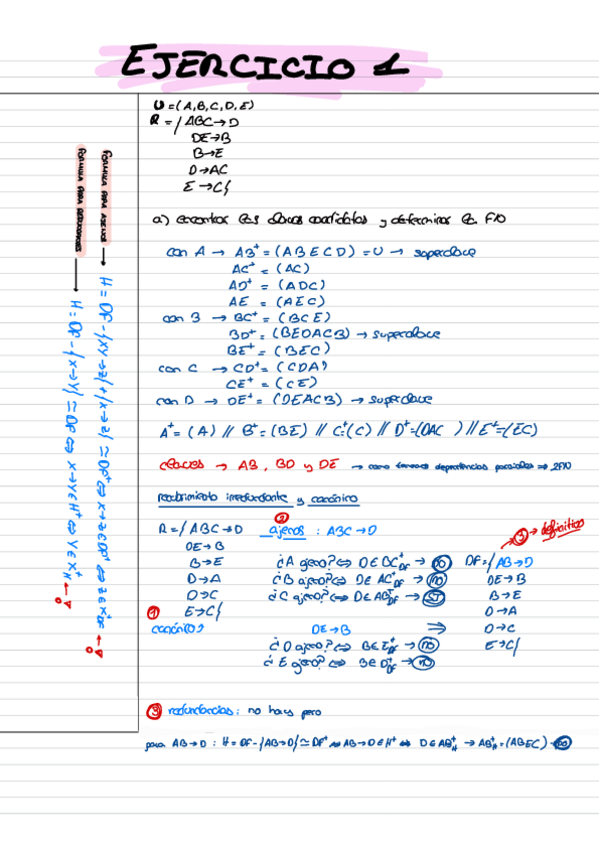 EJERCICIO 1
U = (A, B, C, D, E)
R = { ABC → D
DE → B
B → E
D → AC
E → C}
a) encontrar las claves candidatas y determinar la FN
con A → AB⁺ = (A B E C D) = U → superclave
AC⁺ = (AC)
AD⁺ = (ADC)
AE = (AEC)
con B → BC⁺ = (BCE)
BD⁺ = (BEDACB) → superclave
BE⁺ = (BEC)
con C → CD⁺ = (CDA)
CE⁺ = (CE)
con D → DE⁺ = (DEACB) → superclave
A⁺ = (A) // B⁺ = (BE) // C⁺ = (C) // D⁺ = (DAC ) // E⁺ = (EC)
claves → AB, BD y DE → como tenemos dependencias parciales ⇒ 2FN
recubrimiento irredundante y canónico
R = { ABC → D
DE → B
B → E
D → A
D → C
① E → C}
canónico?
② ajenos : ABC → D
¿A ajeno? ⇔ D ∈ BC⁺DF → no
¿B ajeno? ⇔ D ∈ AC⁺DF → no
¿C ajeno? ⇔ D ∈ AB⁺DF → SI
DE → B ⇒
¿D ajeno? ⇔ B ∈ E⁺DF → no
¿E ajeno? ⇔ B ∈ D⁺DF → no
③ → definitivo
DF = { AB → D
DE → B
B → E
D → A
D → C
E → C}
③ redundancias: no hay, pero
para AB → D : H = DF - {AB → D} ≃ DF⁺ ⇔ AB → D ∈ H⁺ ⇔ D ∈ AB⁺H → AB⁺H = (ABEC) → no
FORMULA PARA AJENOS → H = DF - {XY → Z} + {X → Z} ≃ DF⁺ ⇔ X → Z ∈ DF⁺ ⇔ Z ∈ X⁺DF →
FORMULA PARA REDUNDANTES → H = DF - {X → Y} ≃ DF ⇔ X → Y ∈ H⁺ ⇔ Y ∈ X⁺H →